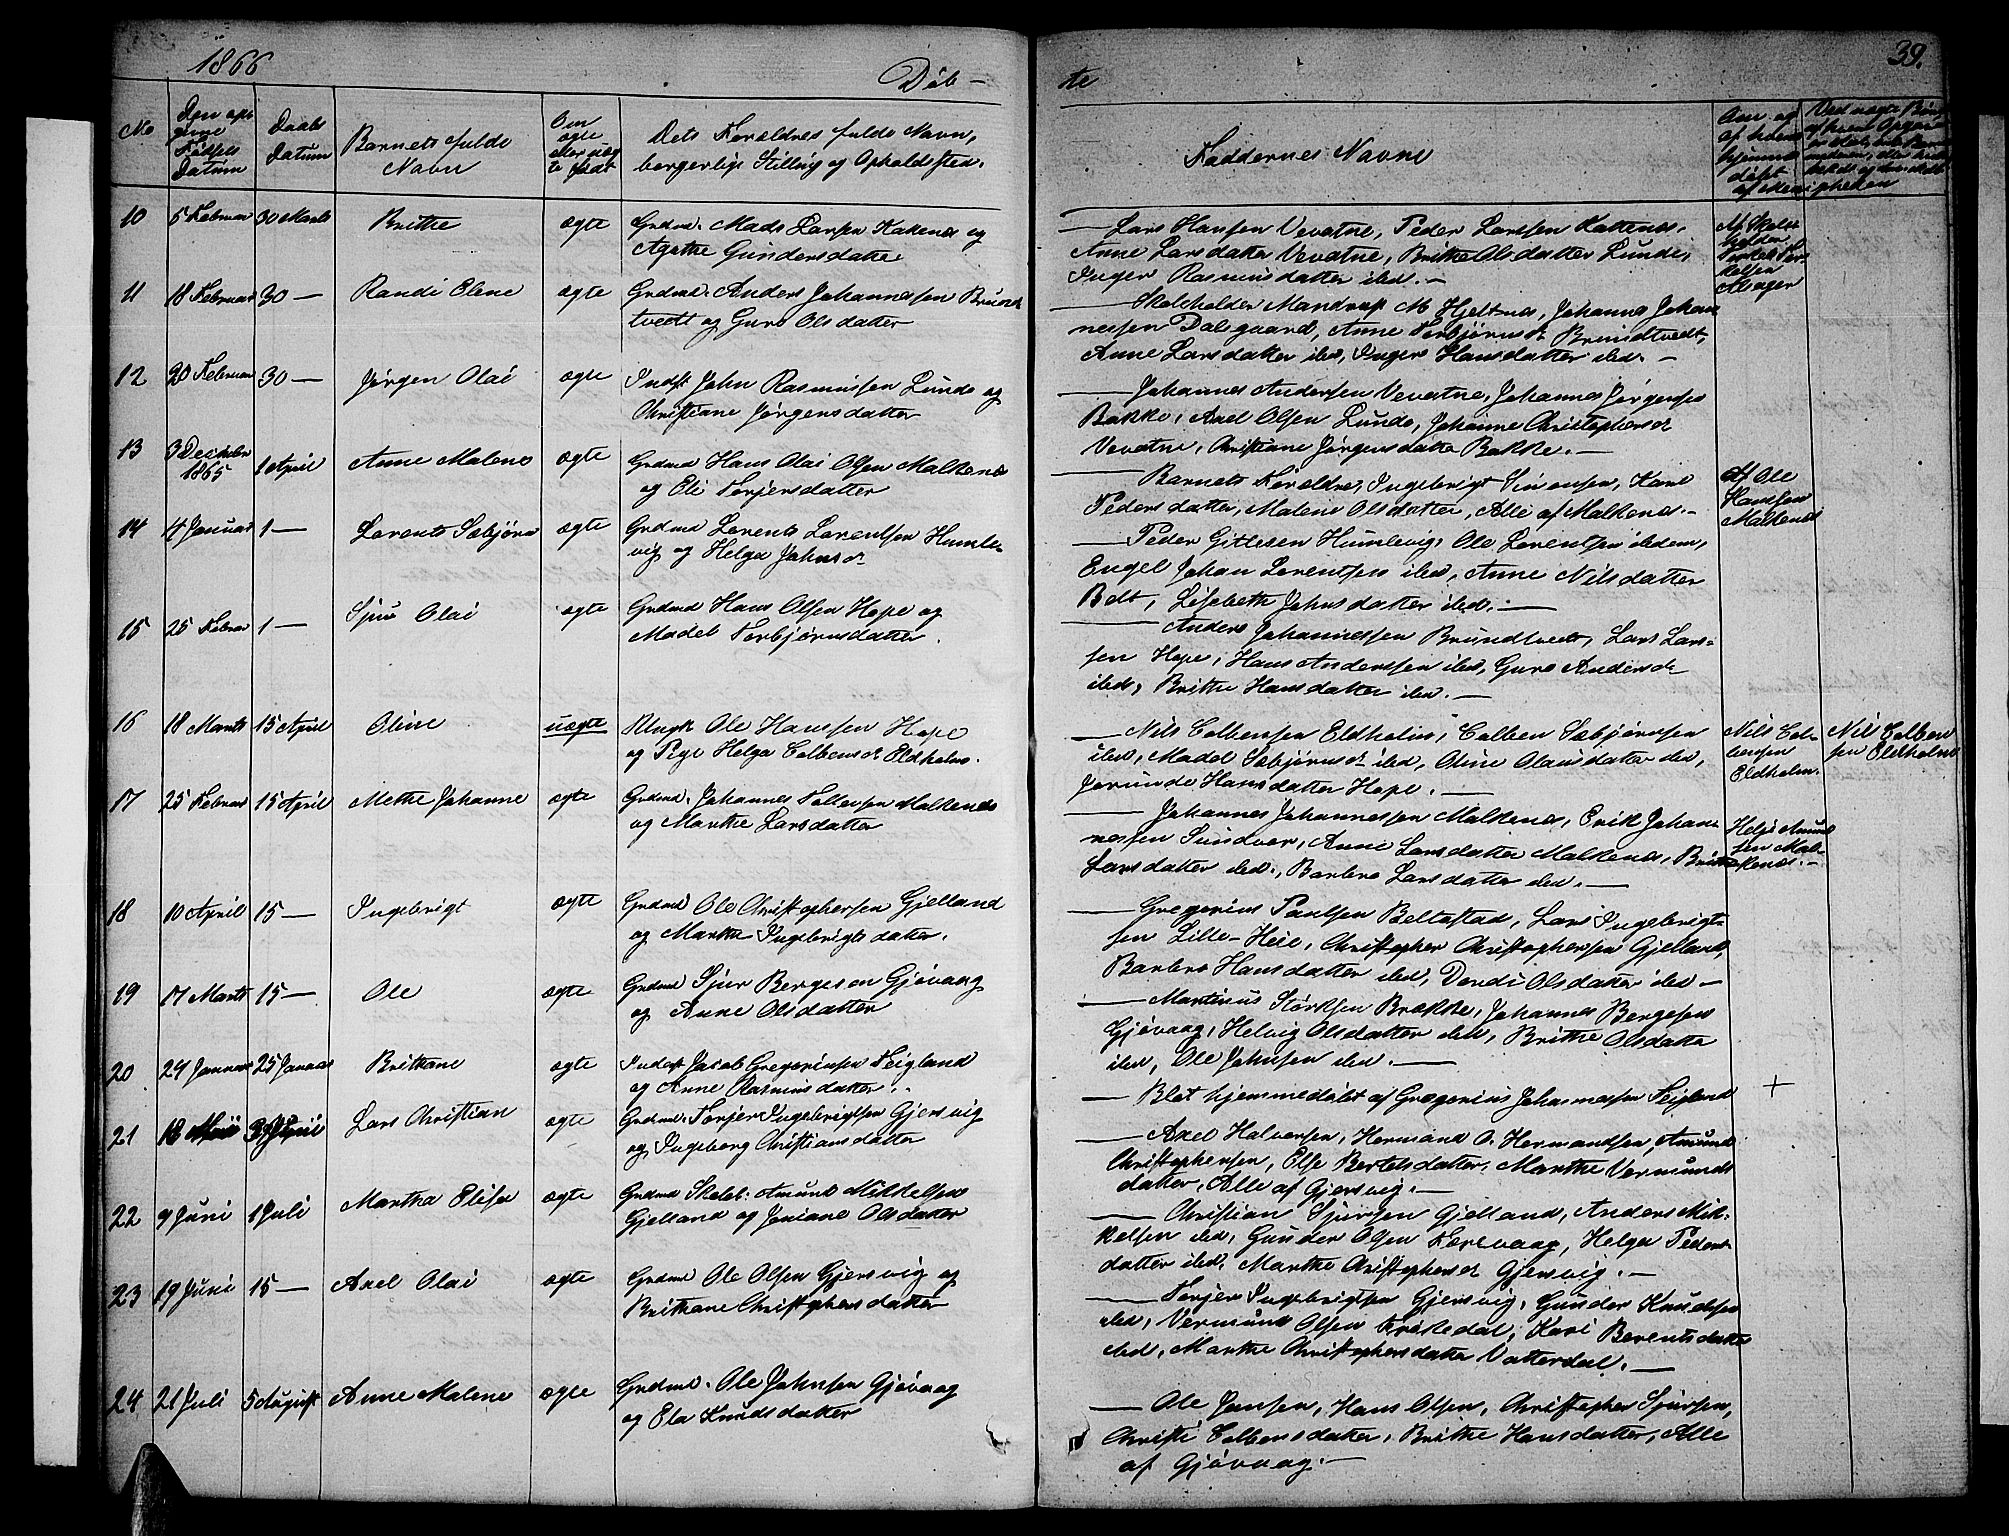 1866
Døb-
te
39.
No
Den opgivne Fødsels Datum
Daabs Datum
Barnets fulde Navn
Om ægte eller uægte født
Dets Forældres fulde Navn, borgerlige Stilling og Opholdsted.
Faddernes Navne
10 5 Februar 30 Marts Brithe ægte Grdmd. Mads Larsen Kakenæs og
Agathe Gundersdatter
— Lars Hansen Vevatne, Peder Larssen Kattenæs,
Anne Larsdatter Vevatne, Brithe Olsdatter Lunde,
Inger Rasmusdatter ibd. —
Af Skole-
holder
Alsager
11 18 Februar 30 — Randi Oline ægte Grdmd. Anders Johannessen Brund
tvedt og Guro Olsdatter
— Skoleholder Mandrup M Hjeltnæs, Johannes Johan
nessen Dalegaard, Anne Torbjørnsd. Brundtvedt,
Anne Larsdatter ibd, Inger Hansdatter ibd. —
12 20 Februar 30 — Jørgen Olai ægte Indst John Rasmussen Lunde og
Christiane Jørgensdatter
— Johannes Andersen Vevatne, Johannes Jørgensen
Bakke, Axel Olsen Lunde, Johanne Christophersd.
Vevatne, Christiane Jørgensdatter Bakke. —
13 3 December
1865 1 April Anne Malene ægte Grdmd Hans Olai Olsen Malkenæs
og Eli Torjersdatter
— Barnets Forældre, Ingebrigt Simonsen, Kari
Pedersdatter, Malene Olsdatter, Alle af Malkenæs. —
Af Ole
Hanssen
Malkenæs
14 4 Januar 1 — Lorents Sæbjørn ægte Grdmd Lorents Lorentsen Humle-
vig og Helga Johnsd.
— Peder Gitlesen Humlevig, Ole Lorentsen ibidem,
Engel Johan Lorentsen ibd, Anne Nilsdatter
Belt, Lisebeth Johnsdatter ibd. —
15 25 Februar 1 — Sjur Olai ægte Grdmd Hans Olsen Hope og
Madel Torbjørnsdatter.
— Anders Johannessen Brundtvedt, Lars Lars-
sen Hope, Hans Anderssen ibd, Guro Andersd.
ibd, Brithe Hansdatter ibd. —
16 18 Marts 15 April Oline uægte Ungk Ole Hanssen Hope
og Pige Helga Colbensd. Eldholm.
— Nils Colbensen Eldholm, Colben Sæbjørnsen
ibd, Madel Sæbjørnsd. ibd, Oline Olausdatter ibd,
Jorunde Hansdatter Hope. —
Nils Col-
bensen
Eldholm.
Nils Colben
sen Eldholm
17 25 Februar 15 April Methe Johanne ægte Grdmd. Johannes Tollevsen Malkenæs
og Marthe Larsdatter
— Johannes Johannessen Malkenæs, Erik Johan
nessen Sundvor, Anne Larsdatter Malkenæs, Brithe
Larsdatter ibd., Barbro Larsdatter ibd. —
Helje Amund
sen Mal-
kenæs. —
18 10 April 15 — Ingebrigt ægte Grdmd Ole Christophersen Gjelland
og Marthe Ingebrigtsdatter.
— Gregorius Paulsen Beltestad, Lars Ingebrigt-
sen Lille-Heie, Christopher Christophersen Gjelland,
Barbro Hansdatter ibd, Dordi Olsdatter ibd —
19 17 Marts 15 — Ole ægte Grdmd Sjur Bergesen Gjøvaag
og Anne Olsdatter
— Martinus Størksen Brække, Johannes Bergesen
Gjøvaag, Helvig Olsdatter ibd, Brithe Olsdatter
ibd, Ole Johnsen ibd. —
20 24 Januar 25 Januar Brithane ægte Indst Jacob Gregoriussen Seigland
og Anne Rasmusdatter.
— Blot hjemmedøbt af Gregorius Johannessen Seigland +
21 18 Juni Lars Christian ægte Grdmd. Torjer Ingebrigtsen Gjersvig
og Ingeborg Christiansdatter
— Axel Halvorsen, Hermund O. Hermundsen, Amund
Christophersen, Else Bertelsdatter, Marthe Vermunds
datter, Alle af Gjersvig. —
22 9 Juni 1 Juli Martha Elisa ægte Grdmd Skolel: Amund Mikkelsen
Gjelland og Joniane Olsdatter
— Christian Sjursen Gjelland, Anders Mik-
kelsen ibd, Gunder Olsen Færevaag, Helga Peders-
datter ibd, Marthe Christophersd. Gjersvig. —
23 19 Juni 15 — Axel Olai ægte Grdmd Ole Olsen Gjersvig og
Brithane Christophersdatter
— Torjer Ingebrigtsen Gjersvig, Gunder Knudsen
ibd, Vermund Olsen Frøkedal, Kari Berentsdatter
ibd, Marthe Christophersdatter Vatterdal. —
24 21 Juli 5 August Anne Malene ægte Grdmd. Ole Johnsen Gjøvaag
og Ela Knudsdatter
— Ole Jansen, Hans Olsen, Christopher Sjursen,
Christi Colbensdatter, Brithe Hansdatter, Alle
af Gjøvaag. —